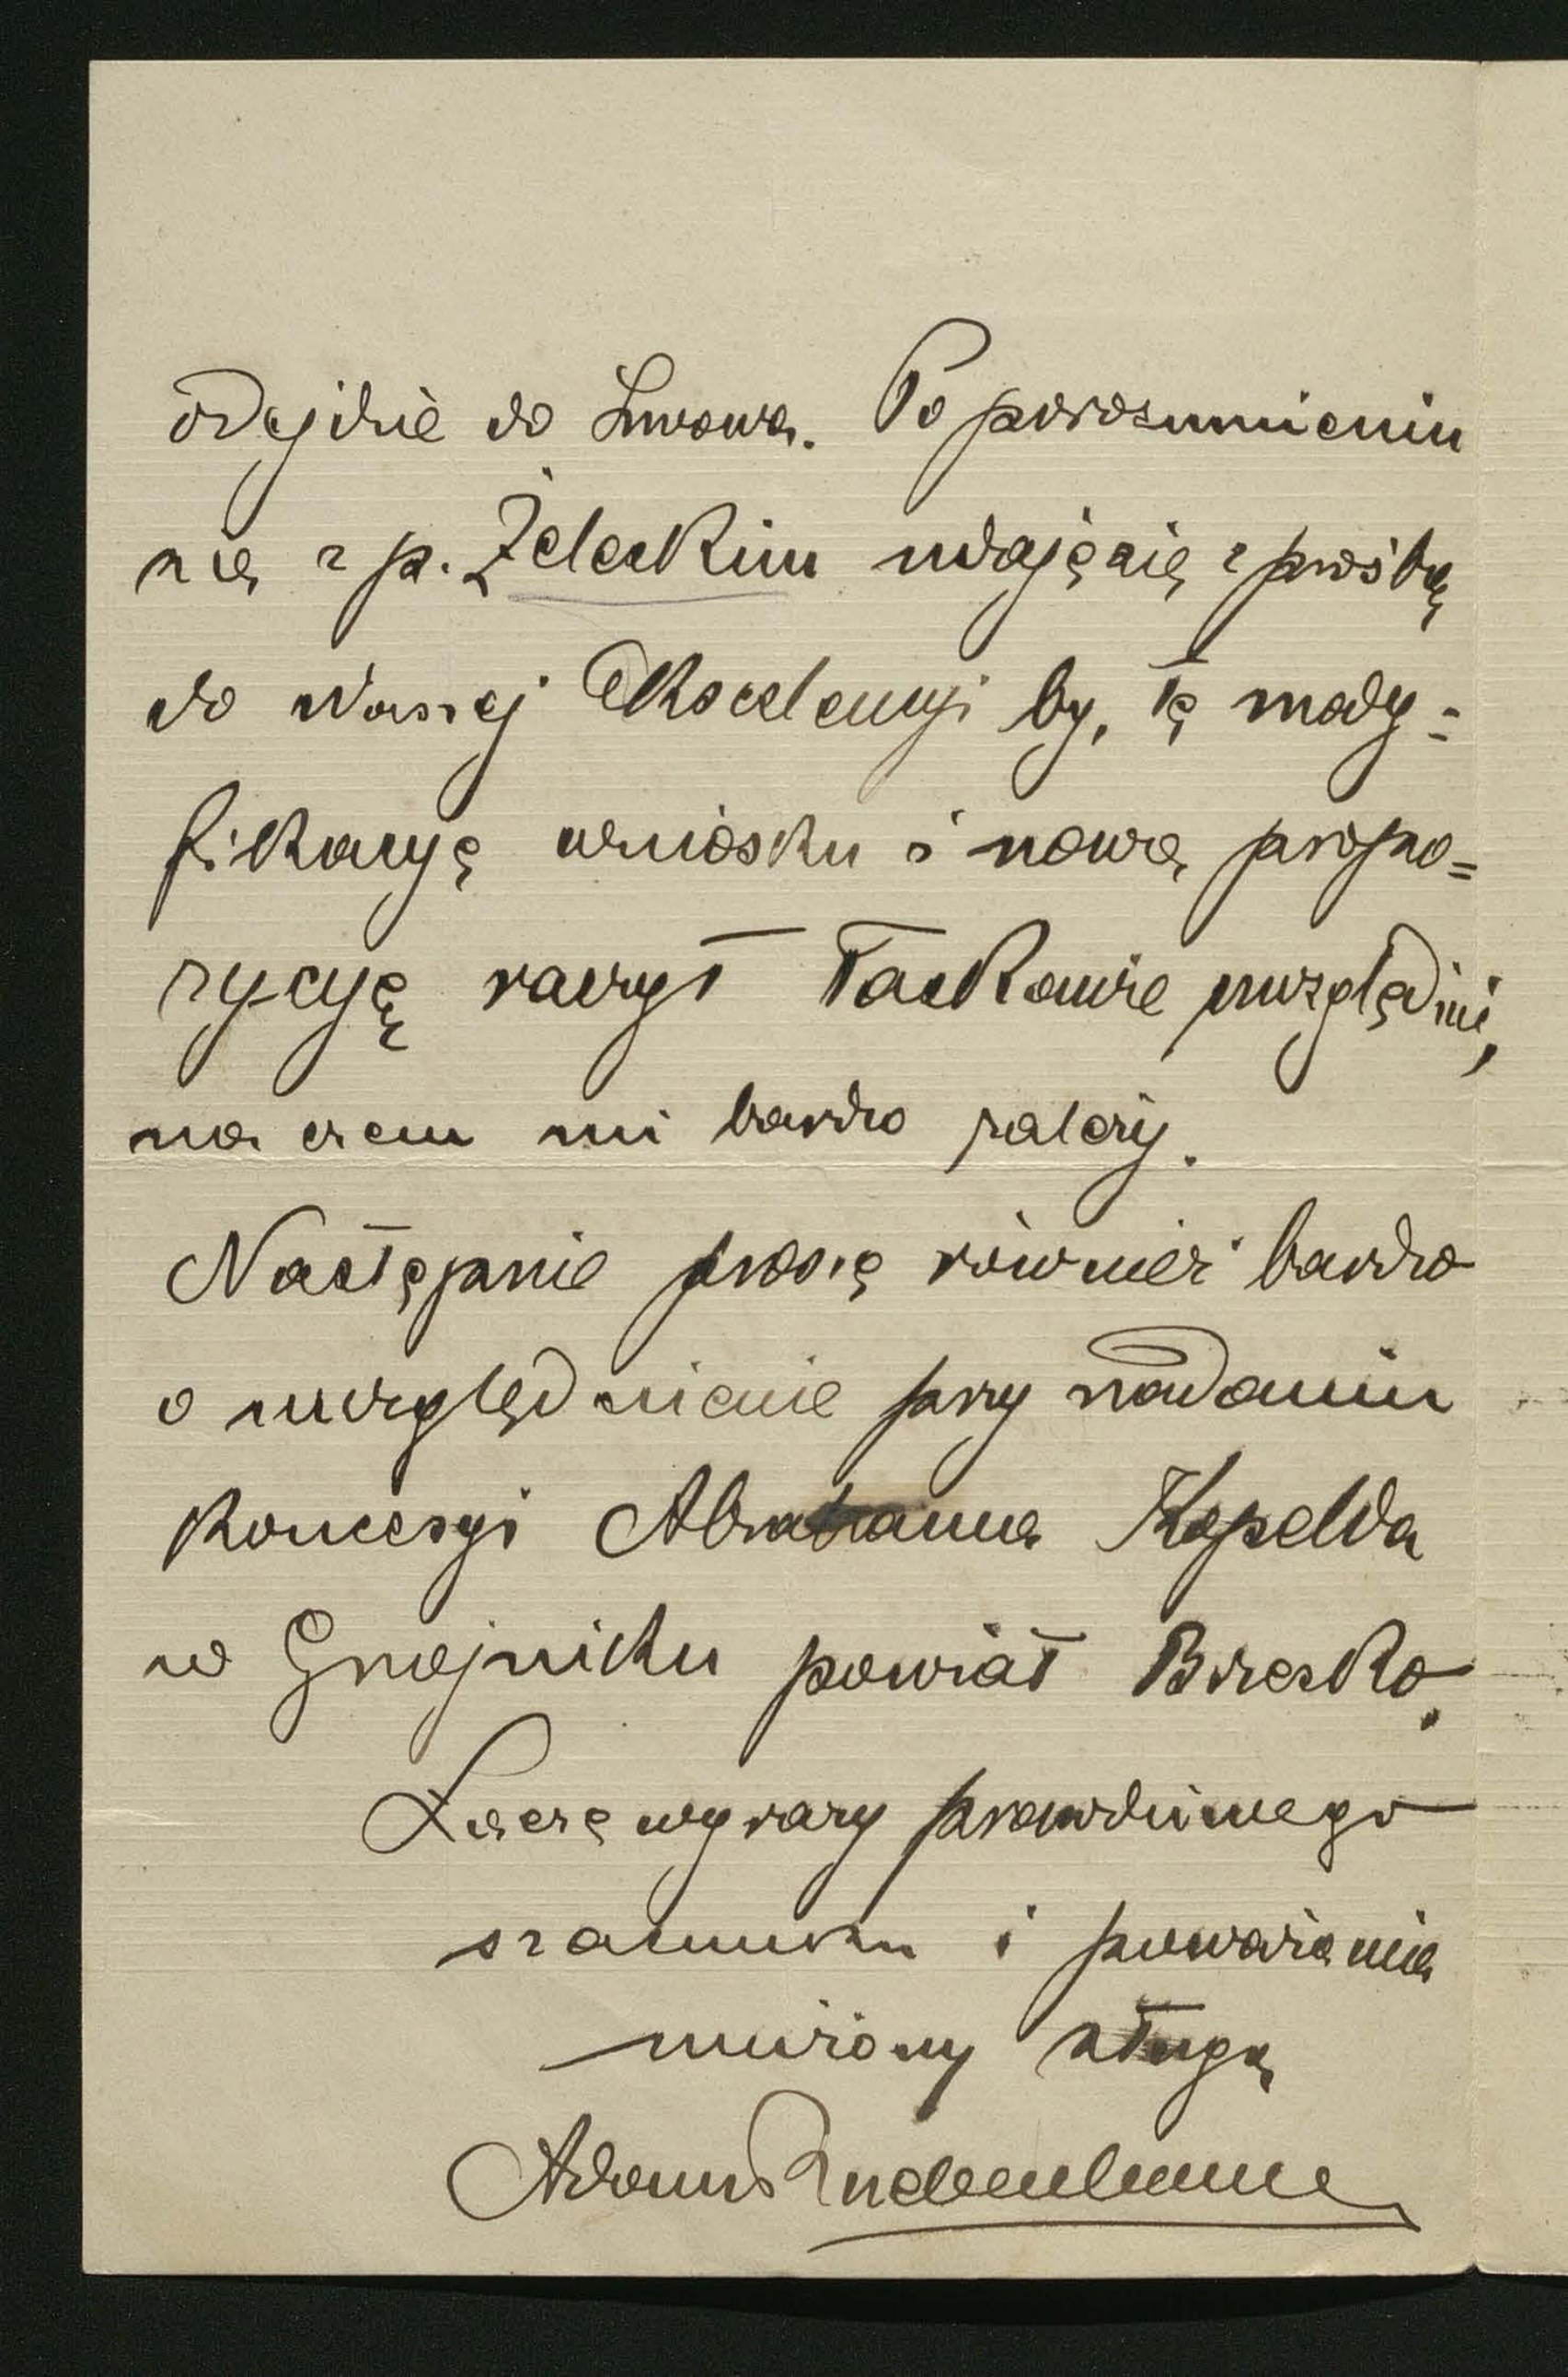 odejdzie do Lwowa. Po porozumieniu
się z p. Żeleskim udaję się z prośbą
do Waszej Ekscelencyi by, tę mody=
fikacyę wniosku i nową propo=
zycyę raczył łaskawie uwzględnić,
na czem mi bardzo zależy.
Następnie proszę również bardzo
o uwzględnienie przy nadaniu
Koncesyi Abrahama Kopelda
w Gnojniku powiat Brzesko.
Łączę wyrazy prawdziwego
szacunku i poważania
uniżony sługa
Adam